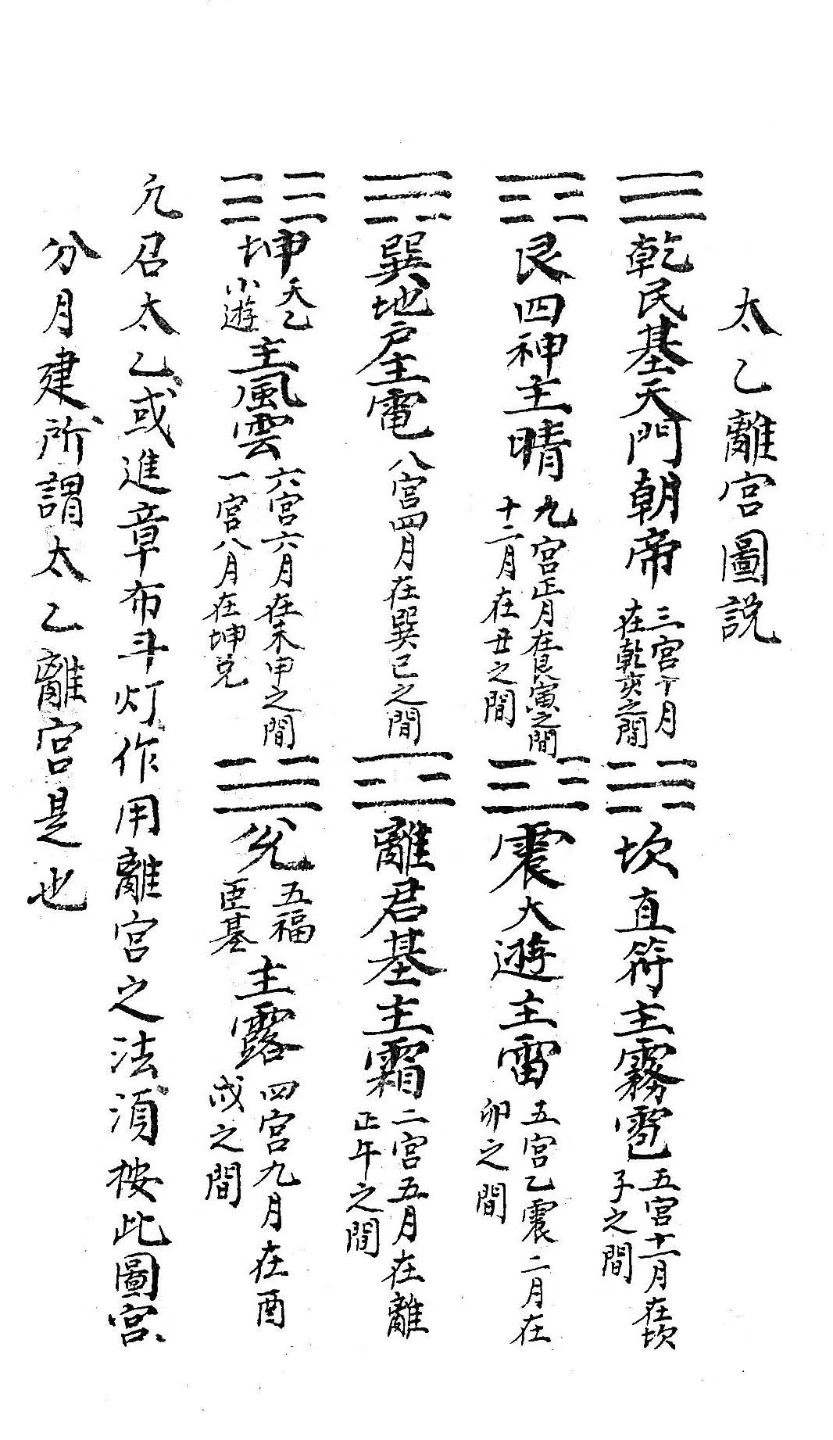 太乙離宮圖説
☰乾民基天門朝帝 三宮十月在乾亥之間
☵坎直符主霧雹 五宮十一月在坎子之間
☶艮四神主晴 九宮正月在艮寅之間十二月在丑之間
☳震大遊主雷 五宮乙震二月在卯之間
☴巽地户主電 八宮四月在巽巳之間
☲離君基主霜 二宮五月在離正午之間
☷坤天乙小遊主風雲 六宮六月在未申之間一宮八月在坤兌
☱兌五福臣基主露 四宮九月在酉戌之間
凢召太乙或進章布斗灯作用離宮之法須按此圖宮
分月建所謂太乙離宮是也